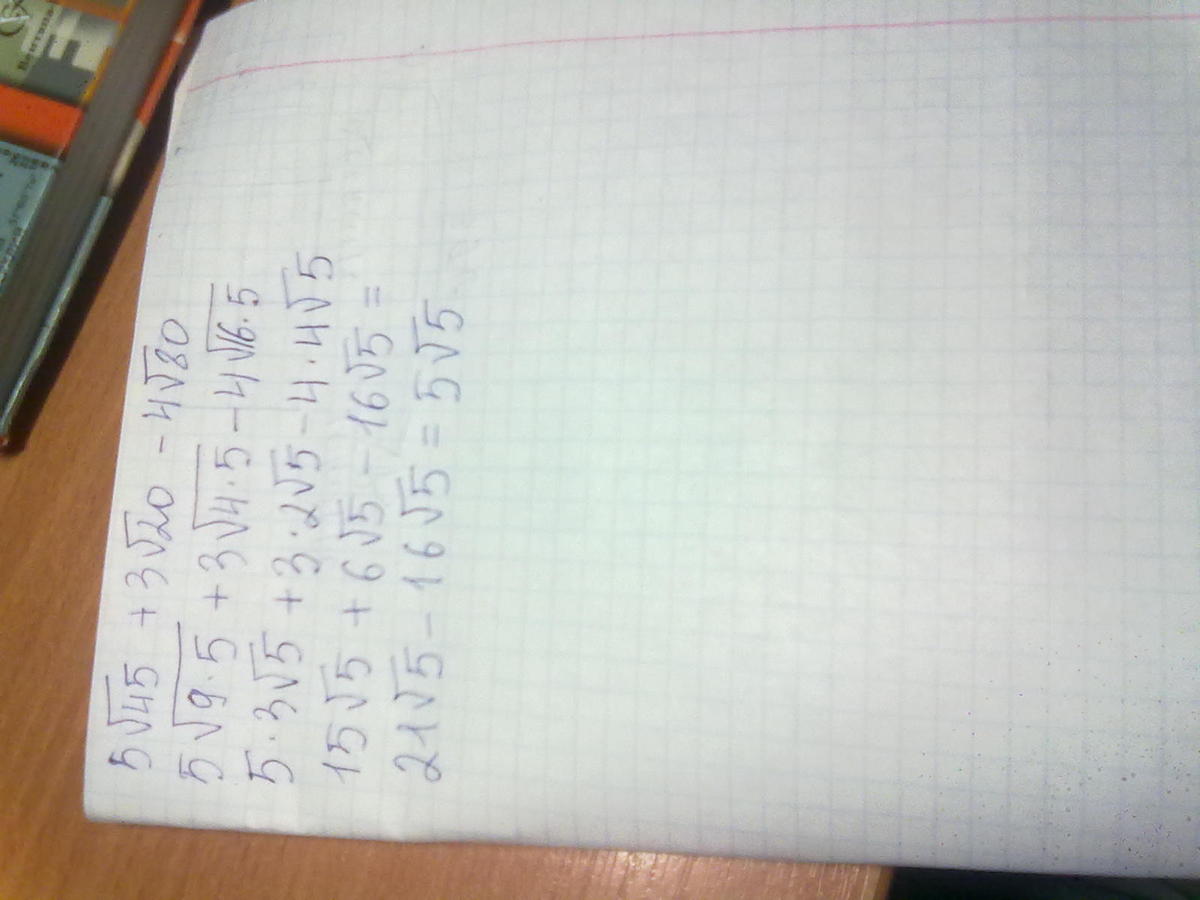 5√45 + 3√20 - 4√80
5√9·5 + 3√4·5 - 4√16·5
5·3√5 + 3·2√5 - 4·4√5
15√5 + 6√5 - 16√5 =
21√5 - 16√5 = 5√5